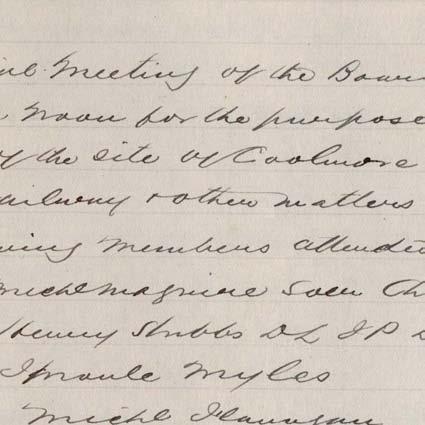 Meeting of the Boar
Noon for the purpose
of the site of Coolmore
ailway & other matters
wing Members attended
Michl Maguire Ch
Henry Stubbs DL JP D
Sproule Myles
Michl Flanagan